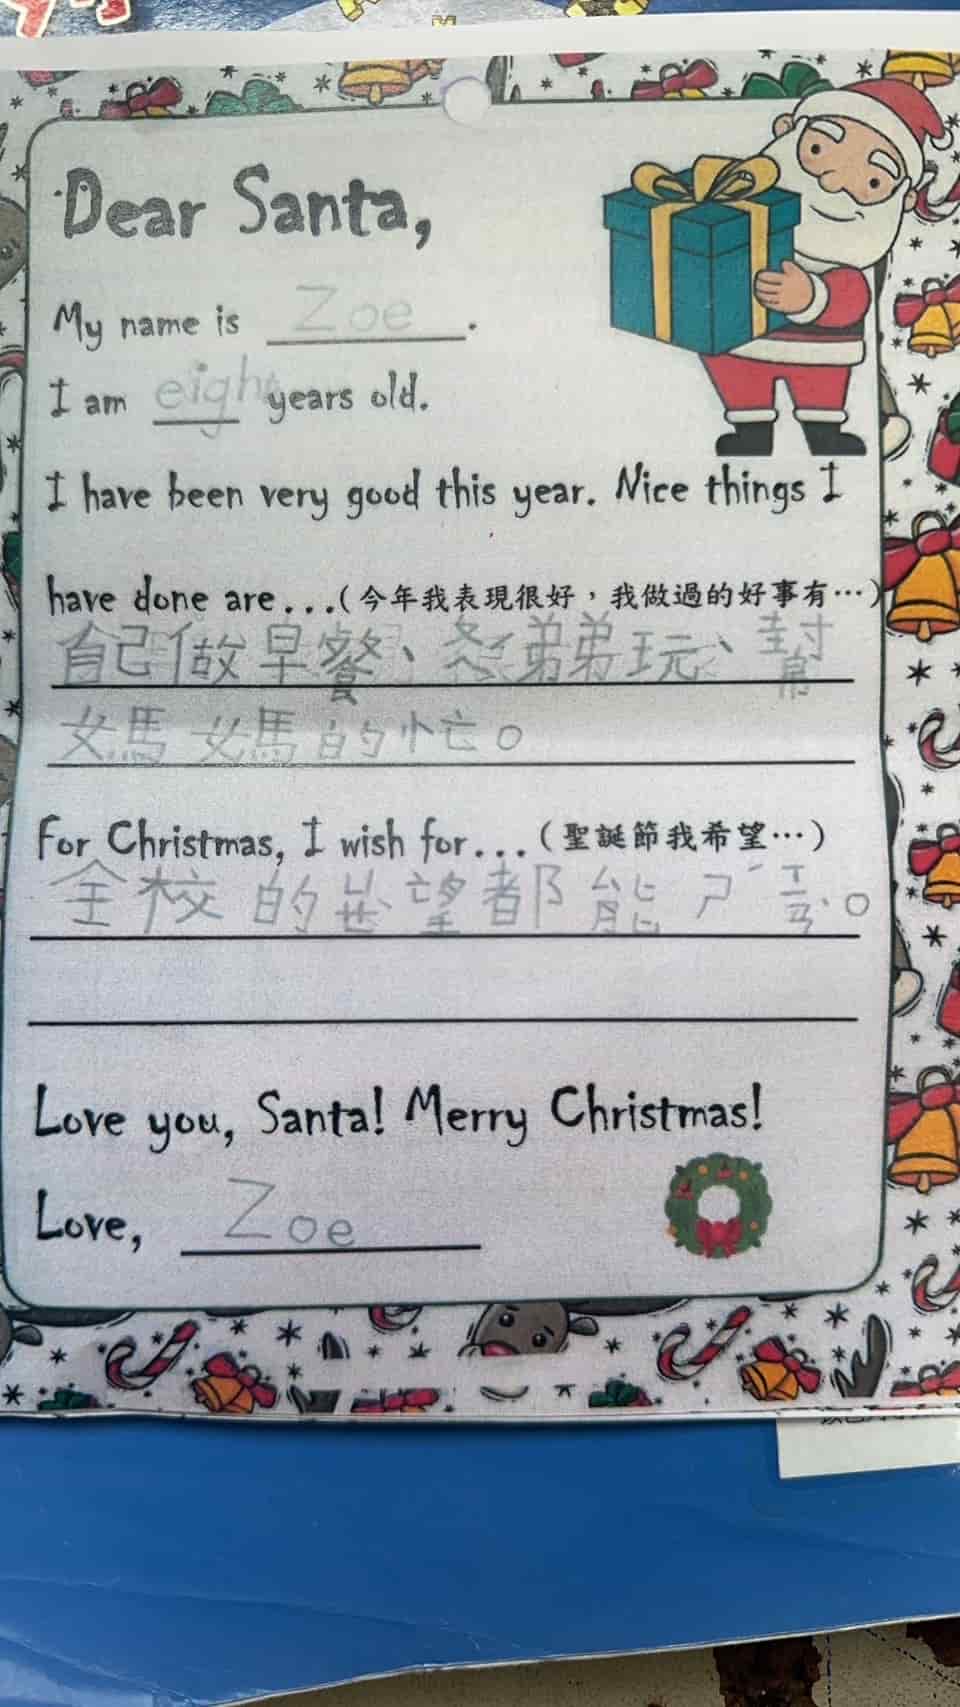 Dear Santa,
My name is Zoe.
I am eight years old.
I have been very good this year. Nice things I
have done are...(今年我表現很好，我做過的好事有…)
自己做早餐、弟弟玩、幫
媽媽的忙。
For Christmas, I wish for...(聖誕節我希望…)
全校的望都能ㄕˊ。
Love you, Santa! Merry Christmas!
Love, Zoe